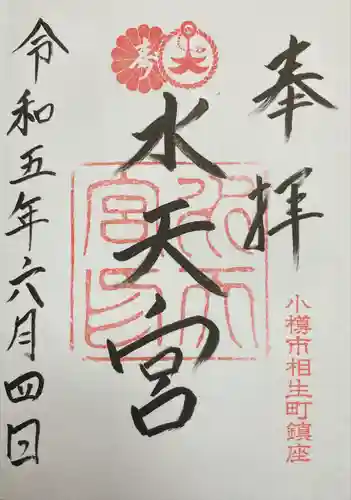 奉拝
小樽市相生町鎮座
水天宮
令和五年六月四日